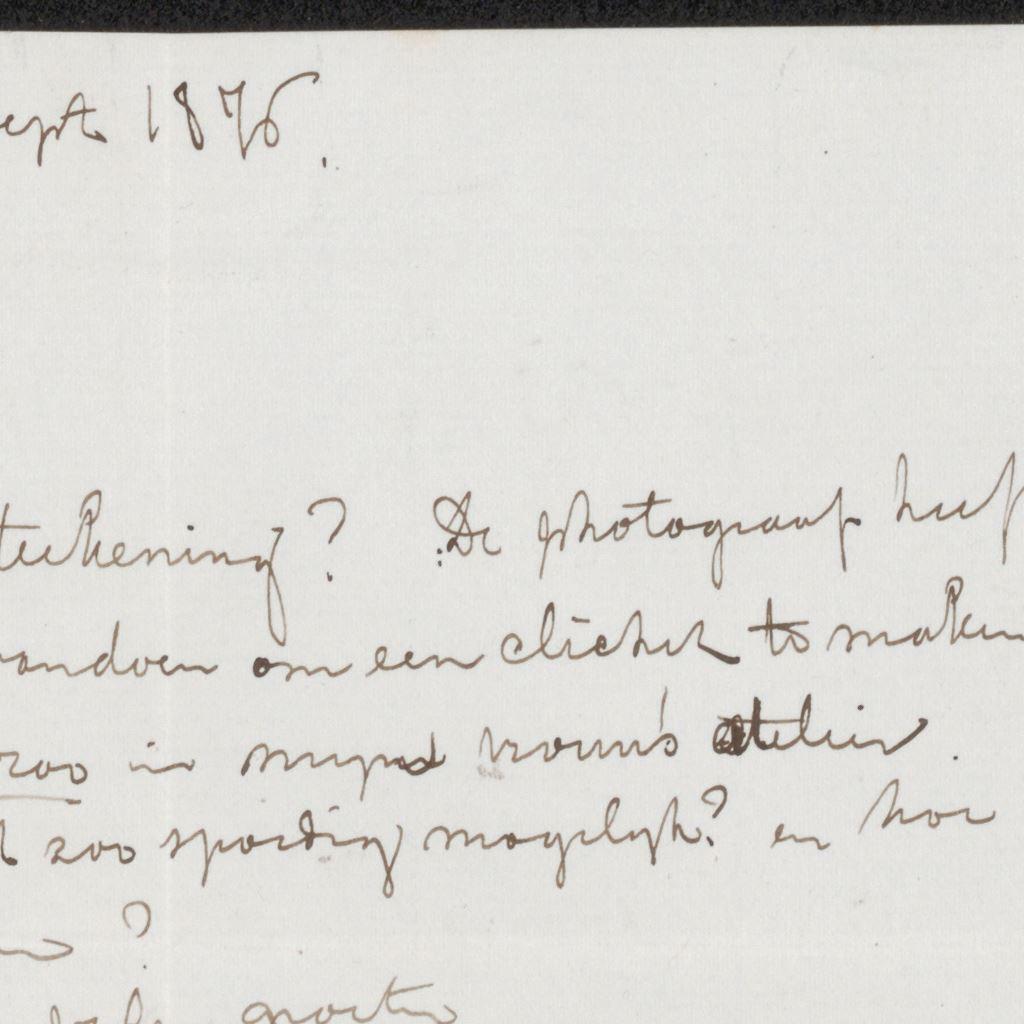 ept 1876.
teekening? De photograaf heef
vandoen om een cliché te maken
zoo in mijns vrouws atelier.
zoo spoedig mogelijk? en hoe
?
groeten